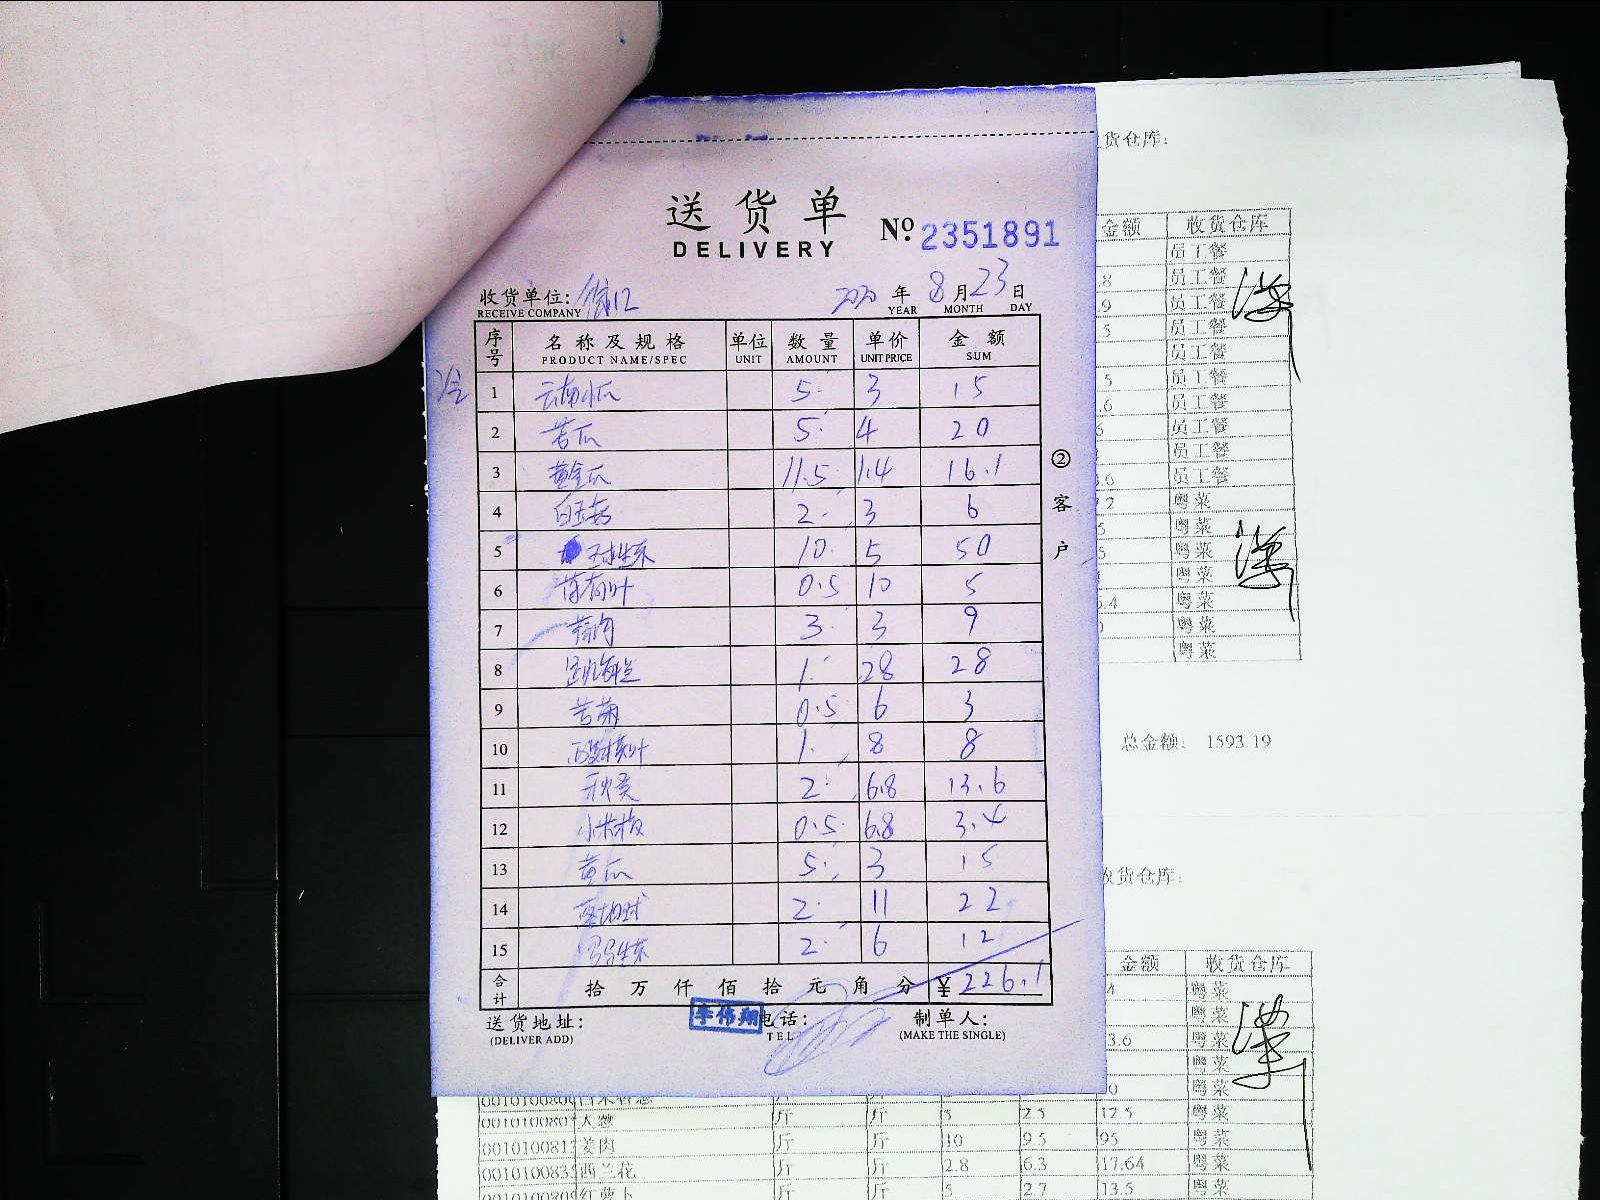 送货单
DELIVERY
Nº 2351891
收货单位:
RECEIVE COMPANY
2020 年 8 月 23 日
YEAR MONTH DAY
序号 名称及规格 单位 数量 单价 金额
PRODUCT NAME/SPEC UNIT AMOUNT UNIT PRICE SUM
1 云南小瓜 5 3 15
2 苦瓜 5 4 20
3 黄金瓜 11.5 1.4 16.1
4 白玉菇 2 3 6
5 10 5 50
6 薄荷叶 0.5 10 5
7 3 3 9
8 1 28 28
9 苦菊 0.5 6 3
10 1 8 8
11 秋葵 2 6.8 13.6
12 小米椒 0.5 6.8 3.4
13 黄瓜 5 3 15
14 2 11 22
15 2 6 12
合计 拾 万 仟 佰 拾 元 角 分 ¥226.1
②客户
送货地址: 李伟翔 电话: 制单人:
(DELIVER ADD) TEL (MAKE THE SINGLE)
货仓库:
金额 收货仓库
员工餐
.8 员工餐
.9 员工餐
.5 员工餐
员工餐
.5 员工餐
.6 员工餐
6 员工餐
员工餐
.6 员工餐
2 粤菜
5 粤菜
粤菜
粤菜
.4 粤菜
粤菜
粤菜
总金额: 1593.19
收货仓库:
金额 收货仓库
4 粤菜
粤菜
3.6 粤菜
粤菜
0 粤菜
大葱 斤 斤 5 2.5 12.5 粤菜
姜肉 斤 斤 10 9.5 95 粤菜
西兰花 斤 斤 2.8 6.3 17.64 粤菜
红萝卜 斤 斤 5 2.7 13.5 粤菜